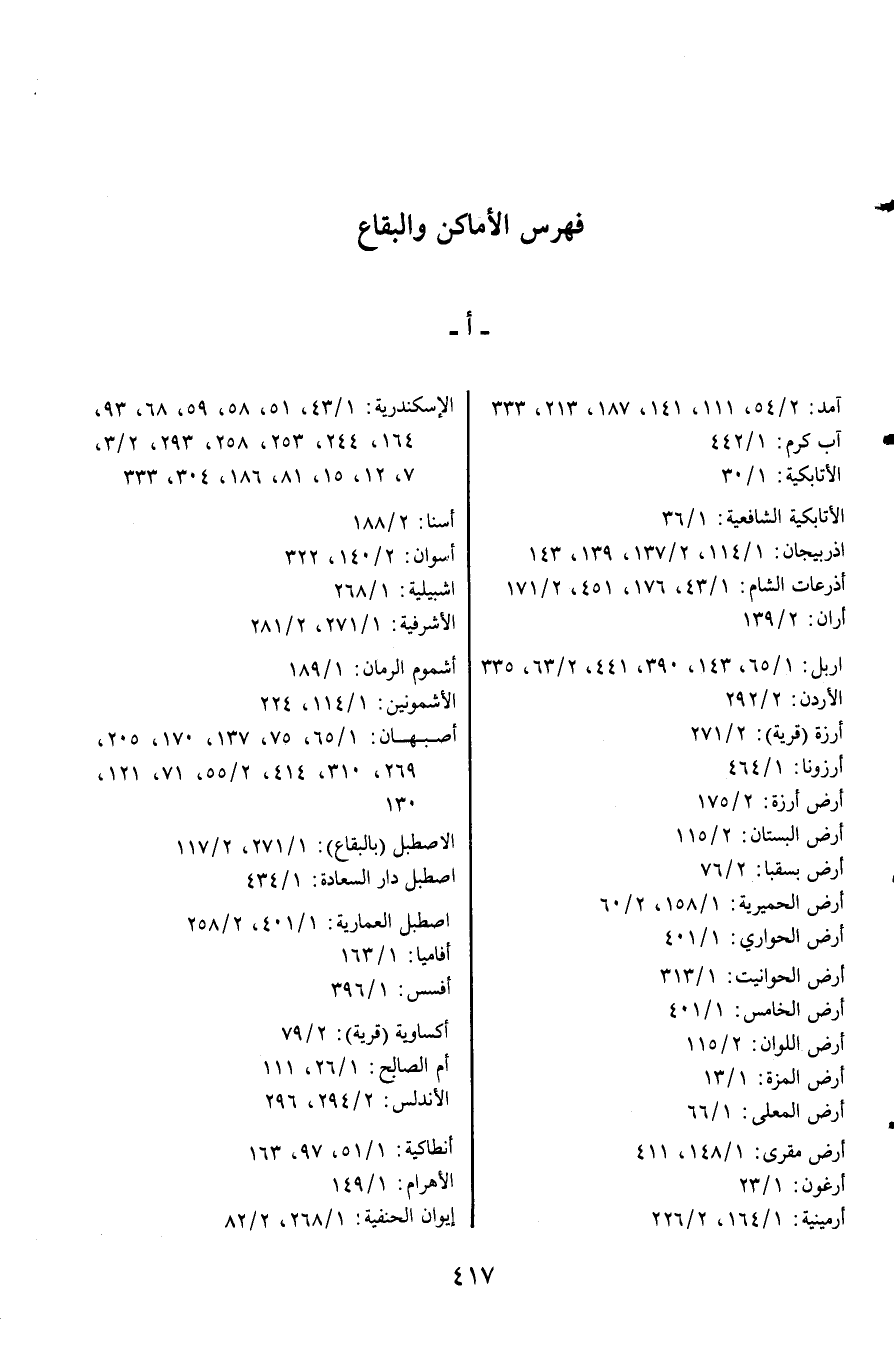 فهرس الأماكن والبقاع
ـ أ ـ
آمد: ٥٤/٢، ١١١، ١٤١، ١٨٧، ٢١٣، ٣٣٣
آب كرم: ٤٤٢/١
الأتابكية: ٣٠/١
الأتابكية الشافعية: ٣٦/١
اذربيجان: ١١٤/١، ١٣٧/٢، ١٣٩، ١٤٣
أذرعات الشام: ٤٣/١، ١٧٦، ٤٥١، ١٧١/٢
أران: ١٣٩/٢
اربل: ٦٥/١، ١٤٣، ٣٩٠، ٤٤١، ٦٣/٢، ٣٣٥
الأردن: ٢٩٢/٢
أرزة (قرية): ٢٧١/٢
أرزونا: ٤٦٤/١
أرض أرزة: ١٧٥/٢
أرض البستان: ١١٥/٢
أرض بسقبا: ٧٦/٢
أرض الحميرية: ١٥٨/١، ٦٠/٢
أرض الحواري: ٤٠١/١
أرض الحوانيت: ٣١٣/١
أرض الخامس: ٤٠١/١
أرض اللوان: ١١٥/٢
أرض المزة: ١٣/١
أرض المعلى: ٦٦/١
أرض مقرى: ١٤٨/١، ٤١١
أرغون: ٢٣/١
أرمينية: ١٦٤/١، ٢٢٦/٢
الإسكندرية: ٤٣/١، ٥١، ٥٨، ٥٩، ٦٨، ٩٣،
١٦٤، ٢٤٤، ٢٥٣، ٢٥٨، ٢٩٣، ٣/٢،
٧، ١٢، ١٥، ٨١، ١٨٦، ٣٠٤، ٣٣٣
أسنا: ١٨٨/٢
أسوان: ١٤٠/٢، ٣٢٢
اشبيلية: ٢٦٨/١
الأشرفية: ٢٧١/١، ٢٨١/٢
أشموم الرمان: ١٨٩/١
الأشمونين: ١١٤/١، ٢٢٤
أصبهان: ٦٥/١، ٧٥، ١٣٧، ١٧٠، ٢٠٥،
٢٦٩، ٣١٠، ٤١٤، ٥٥/٢، ٧١، ١٢١،
١٣٠
الاصطبل (بالبقاع): ٢٧١/١، ١١٧/٢
اصطبل دار السعادة: ٤٣٤/١
اصطبل العمارية: ٤٠١/١، ٢٥٨/٢
أفاميا: ١٦٣/١
أفسس: ٣٩٦/١
أكساوية (قرية): ٧٩/٢
أم الصالح: ٢٦/١، ١١١
الأندلس: ٢٩٤/٢، ٢٩٦
أنطاكية: ٥١/١، ٩٧، ١٦٣
الأهرام: ١٤٩/١
إيوان الحنفية: ٢٦٨/١، ٨٢/٢
٤١٧